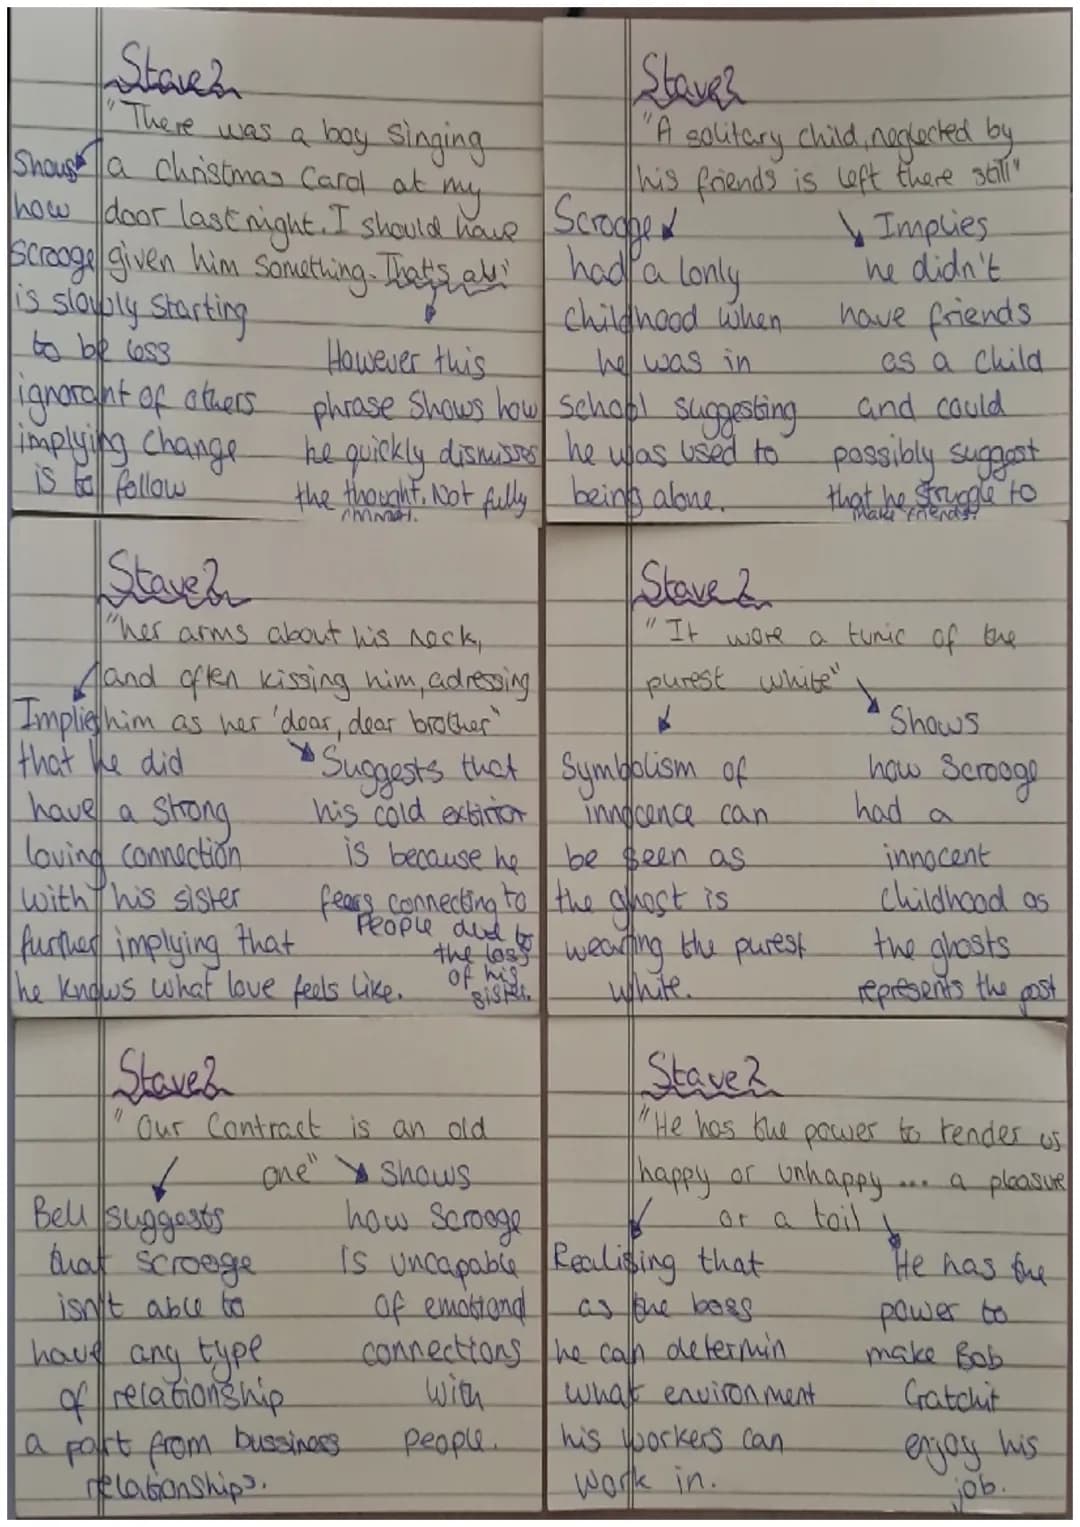 Stave 2
"There was a boy singing
a christmas Carol at my
door last night. I should have
given him something. That's all"
Shows
how
Scrooge
is slowly starting
to be less
ignorant of others
implying change
is to follow
However this
phrase shows how
he quickly dismisses
the thought. Not fully
Stave 2
"A solitary child, neglected by
his friends is left there still"
Scrooge
had a lonly
childhood when
he was in
school suggesting
he was used to
being alone.
Implies
he didn't
have friends
as a child
and could
possibly suggest
that he struggle to
make friends.
Stave 2
"her arms about his neck,
and often kissing him, adressing
him as her 'dear, dear brother"
Implies
that he did
have a strong
loving connection
with his sister
further implying that
he knows what love feels like.
Suggests that
his cold extirior
is because he
fears connecting to
People due to
the loss
of his
sister.
Stave 2
"It wore a tunic of the
purest white"
Symbolism of
innocence can
be seen as
the ghost is
wearing the purest
white.
Shows
how Scrooge
had a
innocent
childhood as
the ghosts
represents the past
Stave 2
"Our Contract is an old
one"
Bell suggests
that scroege
isn't able to
have any type
of relationship
a part from bussiness
relationships.
Shows
how Scrooge
is uncapable
of emotional
connections
with
people.
Stave 2
"He has the power to render us
happy or unhappy ... a pleasure
or a toil
Realising that
as the boss
he can determin
what environment
his workers can
work in.
He has the
power to
make Bob
Cratchit
enjoy his
job.